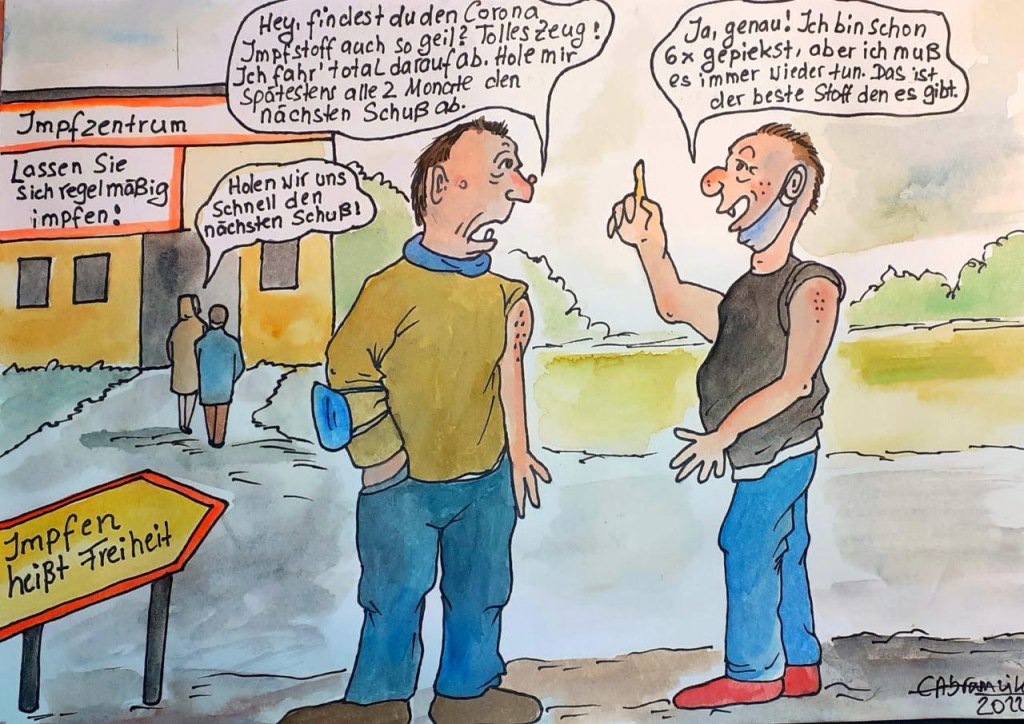 Hey, findest du den Corona
Impfstoff auch so geil? Tolles Zeug!
Ich fahr' total darauf ab. Hole mir
spätestens alle 2 Monate den
nächsten Schuß ab.
Ja, genau! Ich bin schon
6x gepiekst, aber ich muß
es immer wieder tun. Das ist
der beste Stoff den es gibt.
Impfzentrum
Lassen Sie
sich regelmäßig
impfen!
Holen wir uns
Schnell den
nächsten Schuß!
Impfen
heißt Freiheit
2022